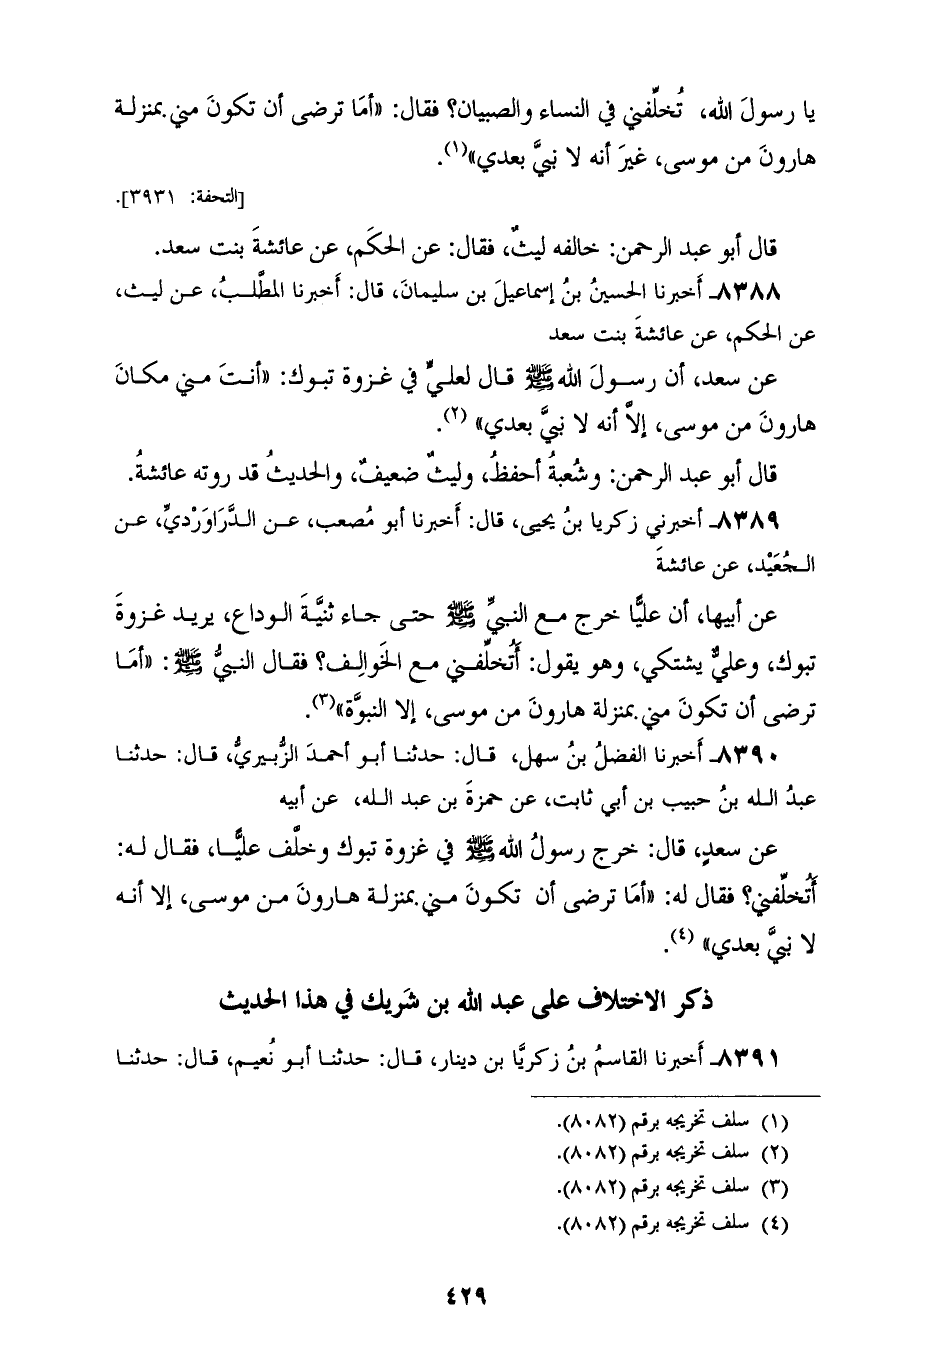 يا رسولَ الله، تُخلِّفني في النساء والصبيان؟ فقال: «أمَا ترضى أن تكونَ مني بمنزلة
هارونَ من موسى، غيرَ أنه لا نبيَّ بعدي»(١).
[التحفة: ٣٩٣١].
قال أبو عبد الرحمن: خالفه ليثٌ، فقال: عن الحكَم، عن عائشةَ بنت سعد.
٨٣٨٨ـ أَخبرنا الحسينُ بنُ إسماعيلَ بن سليمانَ، قال: أَخبرنا المطَّلـبُ، عـن ليـث،
عن الحكم، عن عائشةَ بنت سعد
عن سعد، أن رسـولَ الله ﷺ قـال لعلـيٍّ في غـزوة تبـوك: «أنـتَ مـني مكـانَ
هارونَ من موسى، إلاَّ أنه لا نبيَّ بعدي» (٢).
قال أبو عبد الرحمن: وشُعبةُ أحفظُ، وليثٌ ضعيفٌ، والحديثُ قد روته عائشةُ.
٨٣٨٩ـ أخبرني زكريا بنُ يحيى، قال: أَخبرنا أبو مُصعب، عـن الـدَّرَاوَرْديِّ، عـن
الـجُعَيْد، عن عائشةَ
عن أبيها، أن عليًّا خرج مـع النبيِّ ﷺ حتـى جـاء ثنيَّـةَ الـوداع، يريـد غـزوةَ
تبوك، وعليٌّ يشتكي، وهو يقول: أَتُخلِّفـني مـع الخَوالِف؟ فقـال النبيُّ ﷺ: «أمَـا
ترضى أن تكونَ مني بمنزلة هارونَ من موسى، إلا النبوَّة»(٣).
٨٣٩٠ـ أَخبرنا الفضلُ بنُ سهل، قـال: حدثنـا أبـو أحمـدَ الزُّبـيريُّ، قـال: حدثنـا
عبدُ الـله بنُ حبيب بن أبي ثابت، عن حمزةَ بن عبد الـله، عن أبيه
عن سعدٍ، قال: خرج رسولُ الله ﷺ في غزوة تبوك وخلَّف عليًّـا، فقـال لـه:
أَتُخلِّفني؟ فقال له: «أمَا ترضى أن تكـونَ مـني بمنزلـة هـارونَ مـن موسـى، إلا أنـه
لا نبيَّ بعدي» (٤).
ذكر الاختلاف على عبد الله بن شَريك في هذا الحديث
٨٣٩١ـ أَخبرنا القاسمُ بنُ زكريَّا بن دينار، قـال: حدثنـا أبـو نُعيـم، قـال: حدثنـا
(١) سلف تخريجه برقم (٨٠٨٢).
(٢) سلف تخريجه برقم (٨٠٨٢).
(٣) سلف تخريجه برقم (٨٠٨٢).
(٤) سلف تخريجه برقم (٨٠٨٢).
٤٢٩